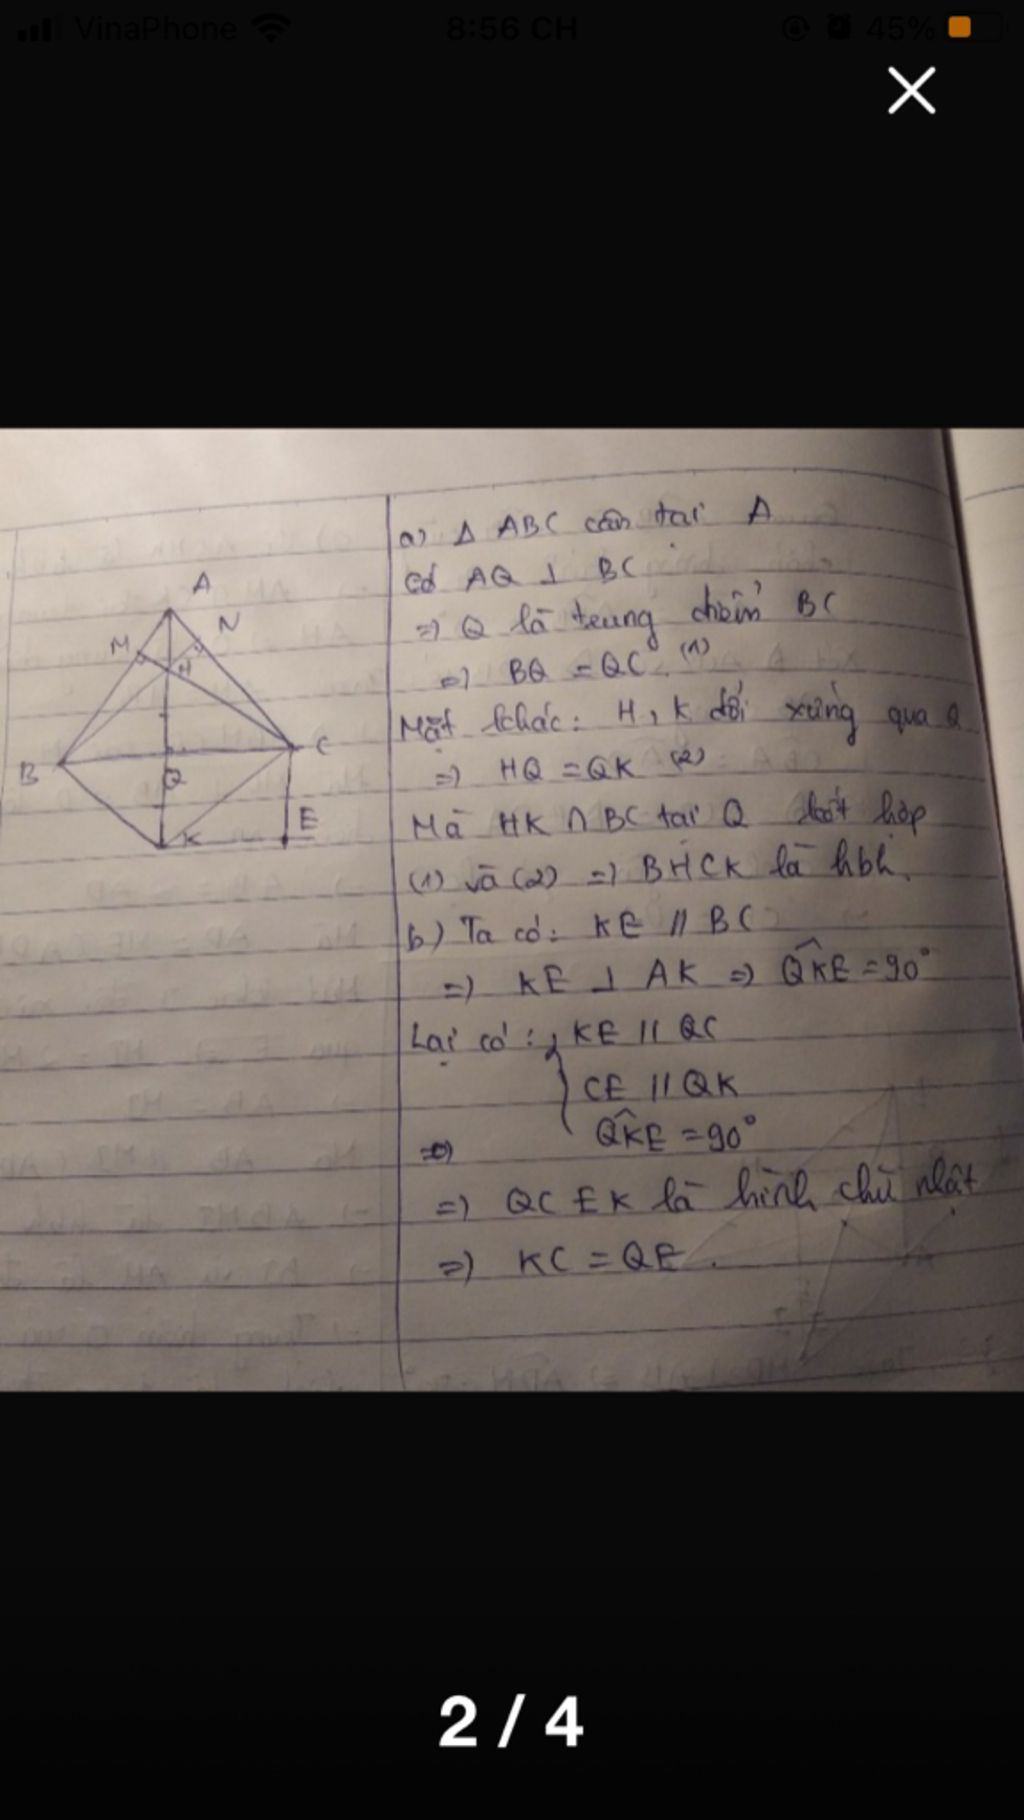 VinaPhone 8:56 CH 45%
A
N
M
H
B
C
Q
K
E
a) Δ ABC cân tại A
Có AQ ⊥ BC
=) Q là trung điểm BC
=) BQ = QC (1)
Mặt khác: H, K đối xứng qua Q
=) HQ = QK (2)
Mà HK ∩ BC tại Q kết hợp
(1) và (2) =) BHCK là hbh.
b) Ta có: KE // BC
=) KE ⊥ AK =) QKE = 90°
Lại có: { KE // QC
CE // QK
QKE = 90°
=)
=) QCEK là hình chữ nhật
=) KC = QE.
2 / 4